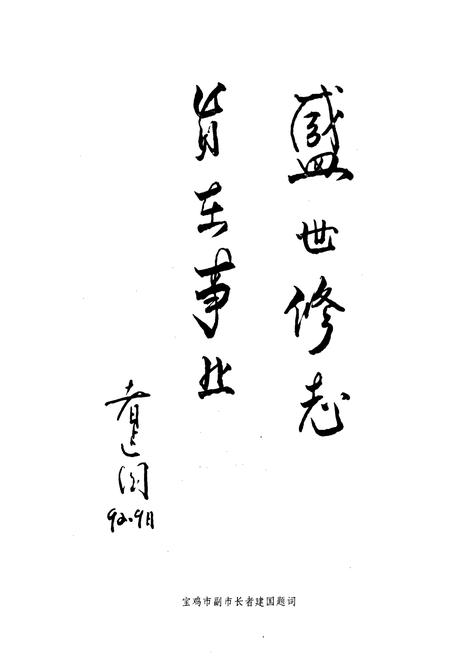 盛世修志
事业
者建国
92.9月
宝鸡市副市长者建国题词